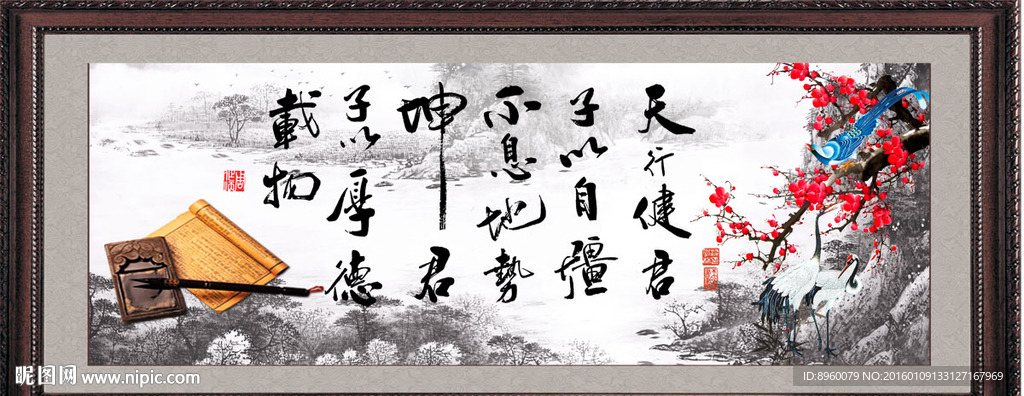 天行健君
子以自彊
不息地勢
坤君
子以厚德
載物
昵图网 www.nipic.com
ID:8960079 NO:20160109133127167969